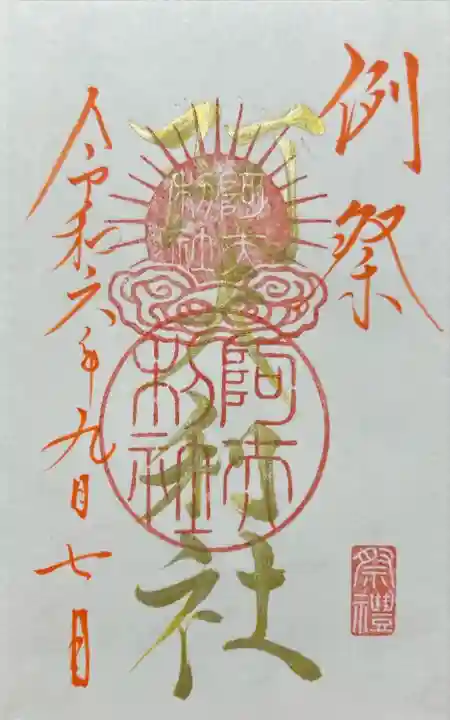 例祭
阿夫利社
阿夫利社
阿夫利社
祭禮
令和六年九月七日